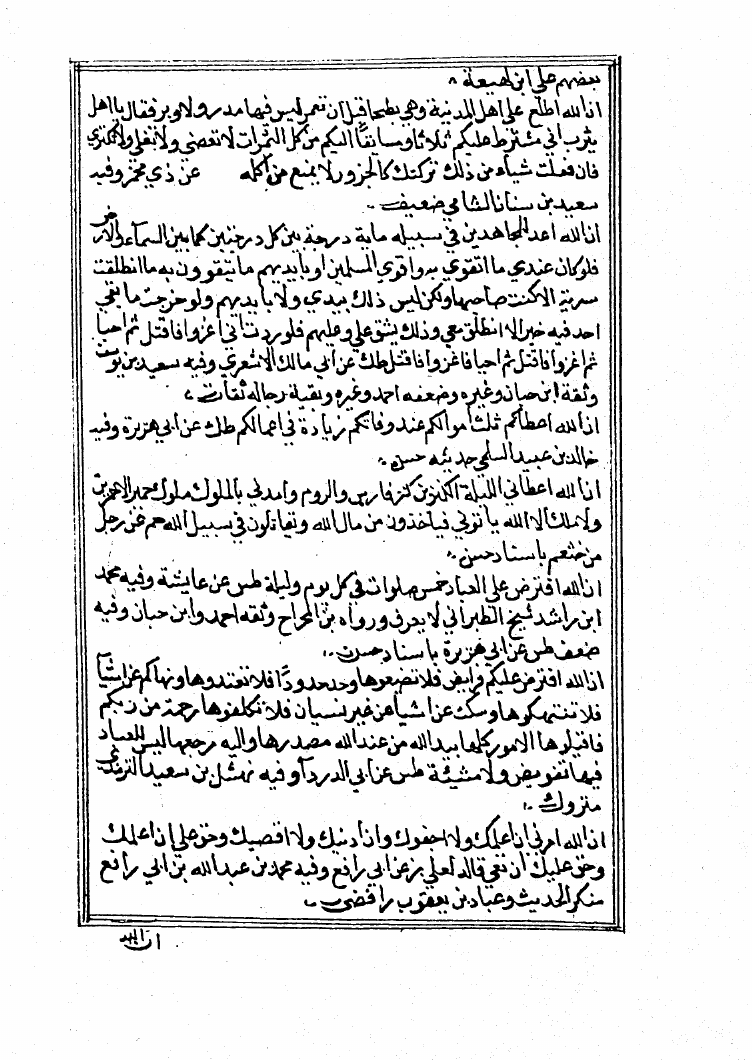 بعضهم علي ابن لهيعة
ان الله اطلع علي اهل المدينة وهي بطحا قبل ان تعمر ليس فيها مدر ولا وبر فقال يا اهل
يثرب اني مشترط عليكم ثلاثا وسايقا اليكم من كل الثمرات لا تعصي ولا تغلي ولا تكبري
فان فعلت شياء من ذلك تركتك كالجزور لا يمنع من اكله عن ذي مخمر وفيه
سعيد بن سنان الشامي ضعيف
ان الله اعد للمجاهدين في سبيله ماية درجة بين كل درجتين كما بين السماء والارض
فلو كان عندي ما اتقوي به واقوي المسلمين او بايديهم ما يتقوون به ما انطلقت
سرية الا كنت صاحبها ولكن ليس ذلك بيدي ولا بايديهم ولو خرجت ما بقي
احد فيه خير الا انطلق معي وذلك يشق علي وعليهم فلوددت اني اغزوا فاقتل ثم احيا
ثم اغزوا فاقتل ثم احيا فاغزوا فاقتل طك عن ابي مالك الاشعري وفيه سعيد بن يوسف
وثقه ابن حبان وغيره وضعفه احمد وغيره وبقية رجاله ثقات
ان الله اعطاكم ثلث اموالكم عند وفاتكم زيادة في اعمالكم طك عن ابي هريرة وفيه
خالد بن عبيد السلمي حديثه حسن
ان الله اعطاني الليلة الكنزين كنز فارس والروم وامدني بالملوك ملوك حمير الاحمرين
ولا ملك الا الله ياتوني فياخذون من مال الله ويقاتلون في سبيل الله حم عن رجل
من خثعم باسناد حسن
ان الله افترض علي العباد خمس صلوات في كل يوم وليلة طس عن عايشة وفيه محمد
ابن راشد شيخ الطبراني لا يعرف ورواه بن الجراح وثقه احمد وابن حبان وفيه
ضعف طس عن ابي هريرة باسناد حسن
ان الله افترض عليكم فرايض فلا تضيعوها وحد حدودا فلا تعتدوها ونهاكم عن اشيا
فلا تنتهكوها وسكت عن اشيا من غير نسيان فلا تكلفوها رحمة من ربكم
فاقبلوها الامور كلها بيد الله من عند الله مصدرها واليه مرجعها ليس للعباد
فيها تفويض ولا مشيئة طس عن ابي الدردآ وفيه نهشل بن سعيد الترمذي
متروك
ان الله امرني ان اعلمك ولا اجفوك وان ادنيك ولا اقصيك وحق علي ان اعلمك
وحق عليك ان تعي قاله لعلي بز عن ابي رافع وفيه محمد بن عبد الله بن ابي رافع
منكر الحديث وعباد بن يعقوب رافضي
ان الله